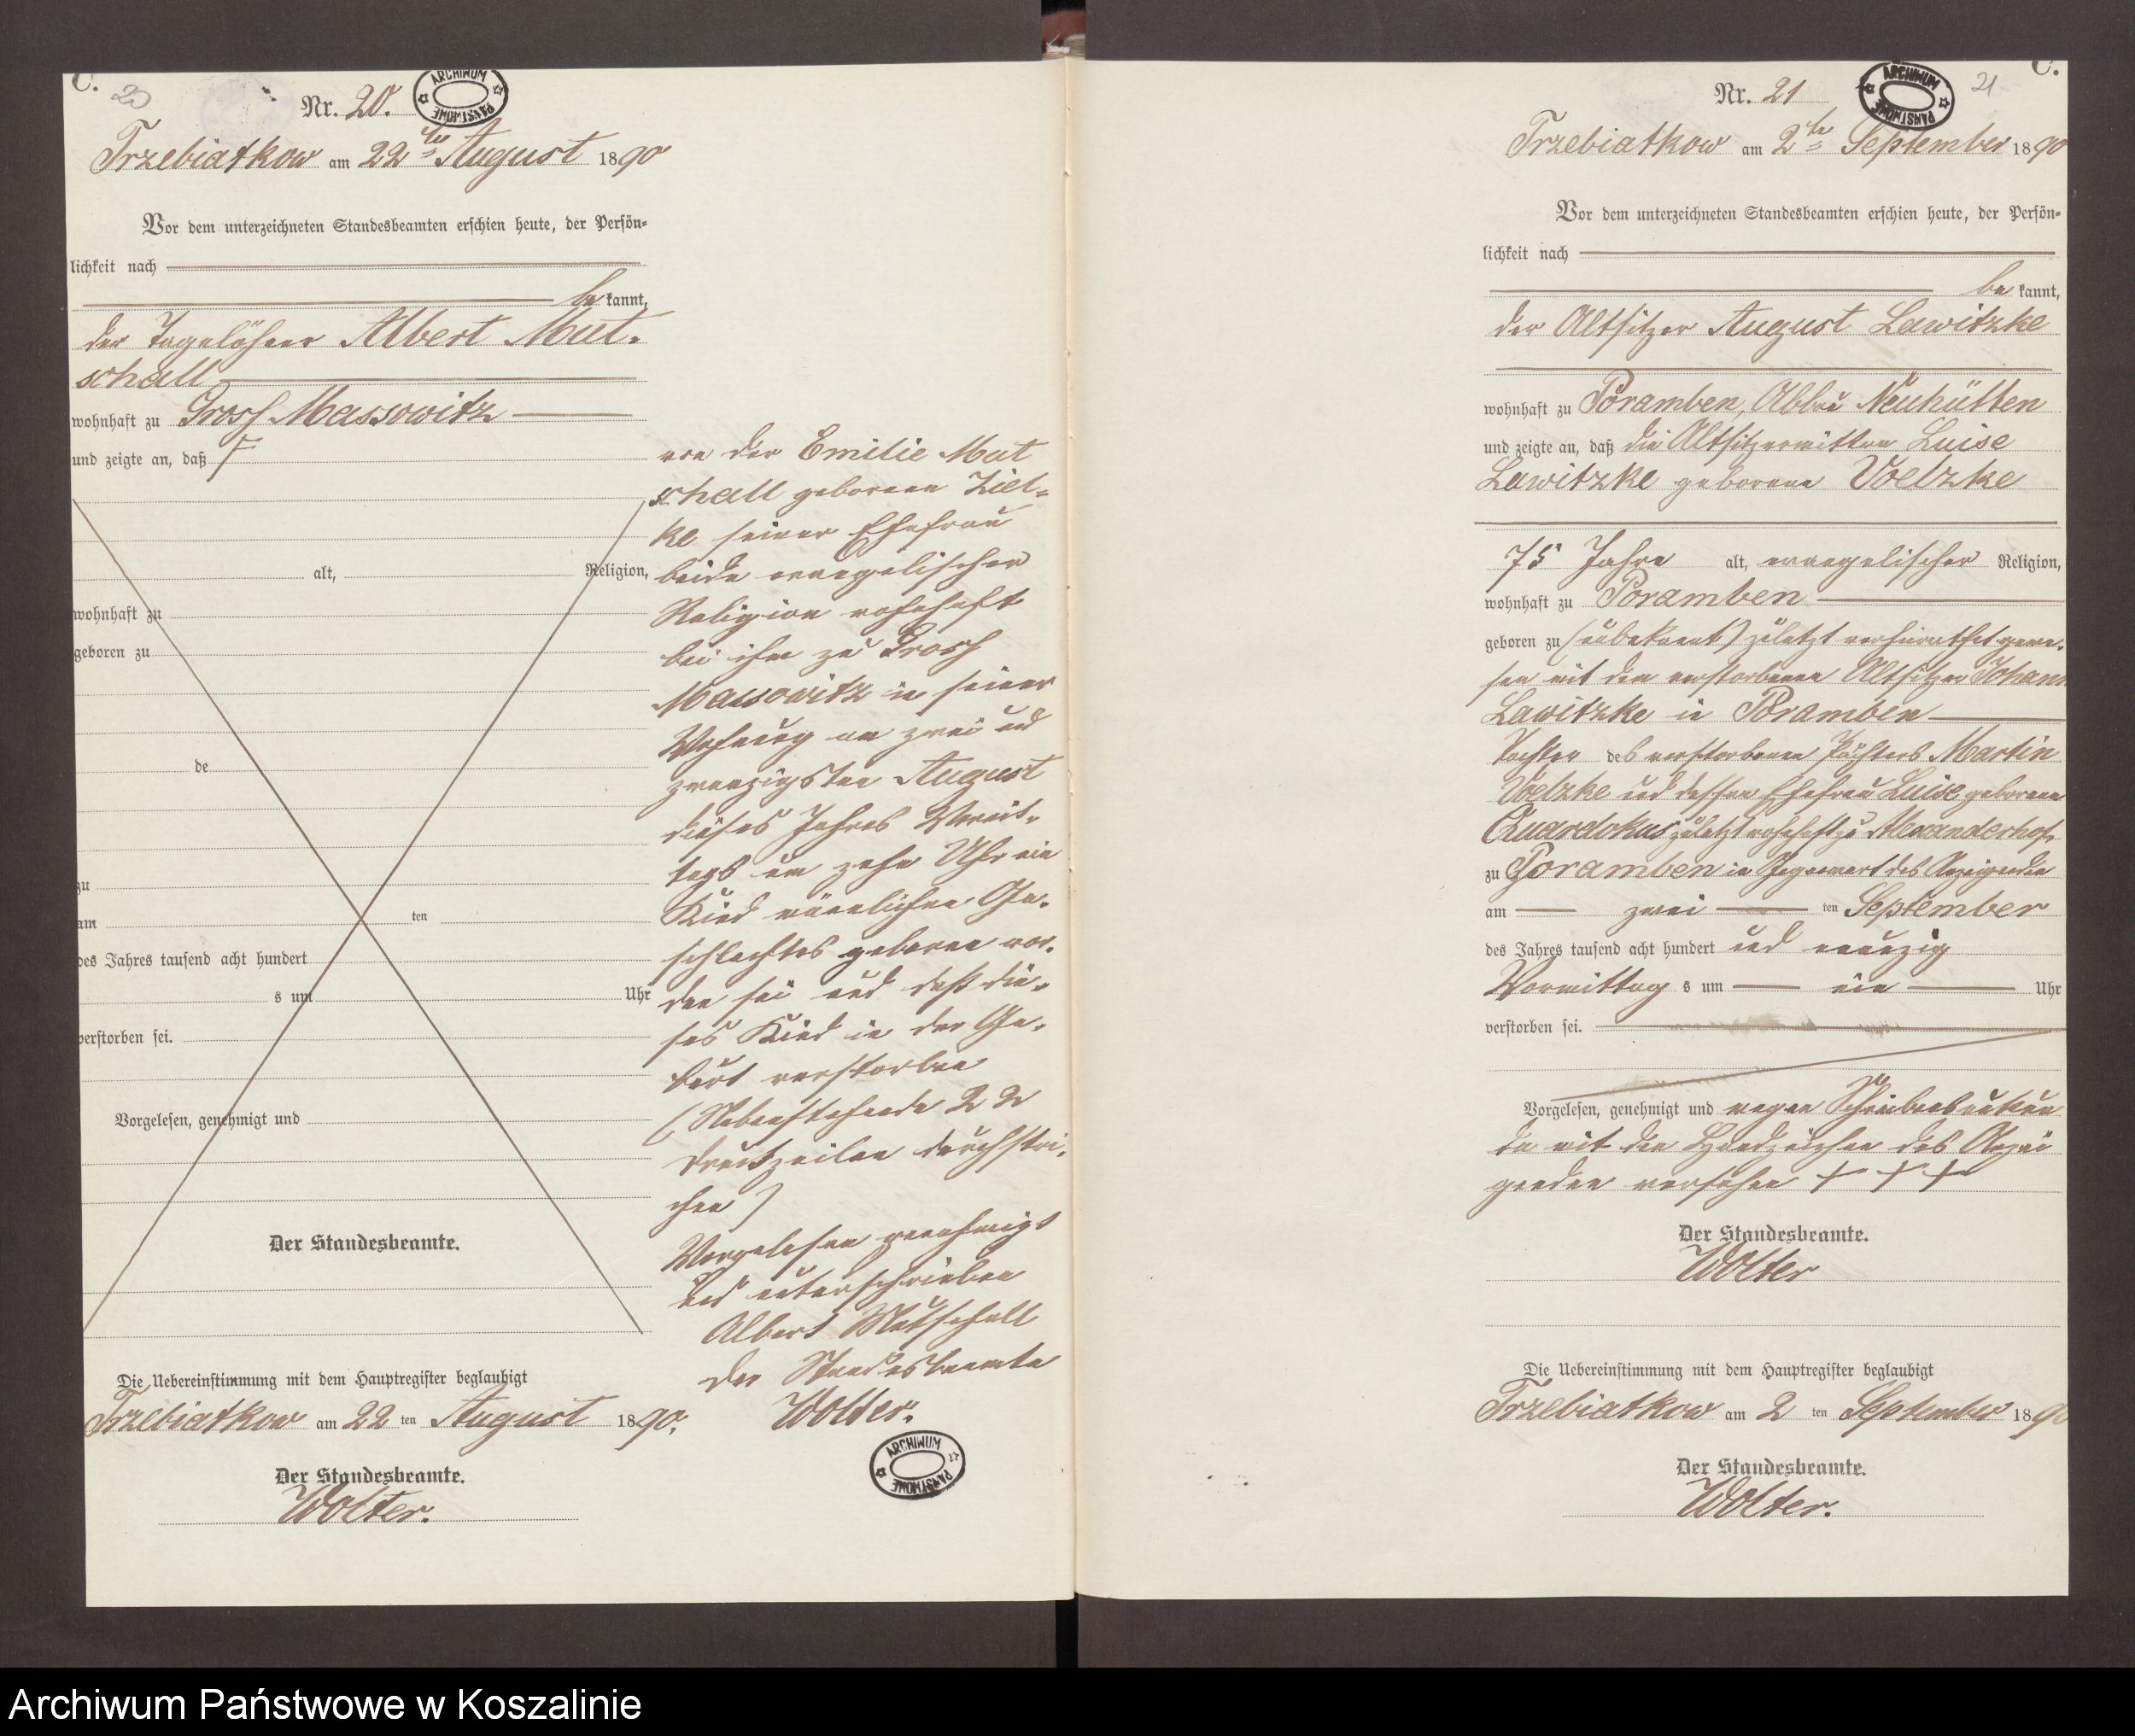 C.
20
Nr. 20.
ARCHIWUM PAŃSTWOWE
Trzebiatkow am 22ten August 1890
Vor dem unterzeichneten Standesbeamten erschien heute, der Persön-
lichkeit nach
be kannt,
der Tagelöhner Albert Mut-
schall
wohnhaft zu Gross Massowitz
und zeigte an, daß
alt, Religion,
wohnhaft zu
geboren zu
de
zu
am ten
des Jahres tausend acht hundert
s um Uhr
verstorben sei.
Vorgelesen, genehmigt und
Der Standesbeamte.
Die Uebereinstimmung mit dem Hauptregister beglaubigt
Trzebiatkow am 22 ten August 1890.
Der Standesbeamte.
Wolter.
von der Emilie Mut
schall geborenen Ziel-
ke seiner Ehefrau
beide evangelischer
Religion wohnhaft
bei ihm zu Gross
Massowitz in seiner
Wohnung am zwei und
zwanzigsten August
dieses Jahres Vormit-
tags um zehn Uhr ein
Kind männlichen Ge-
schlechtes geboren wor-
den sei und daß die-
ses Kind in der Ge-
burt verstorben
(Nebenstehende 22
Druckzeilen durchstri-
chen)
Vorgelesen genehmigt
und unterschrieben
Albert Mutschall
Der Standesbeamte
Wolter.
ARCHIWUM PAŃSTWOWE
C.
21
Nr. 21
ARCHIWUM PAŃSTWOWE
Trzebiatkow am 2ten September 1890
Vor dem unterzeichneten Standesbeamten erschien heute, der Persön-
lichkeit nach
be kannt,
der Altsitzer August Lawitzke
wohnhaft zu Poramben, Abbau Neuhütten
und zeigte an, daß die Altsitzerwittwe Luise
Lawitzke geborene Voelzke
75 Jahre alt, evangelischer Religion,
wohnhaft zu Poramben
geboren zu (unbekannt) zuletzt verheirathet gewe-
sen mit dem verstorbenen Altsitzer Johann
Lawitzke in Poramben
Tochter des verstorbenen Pächters Martin
Voelzke und dessen Ehefrau Luise geborene
zuletzt wohnhaft zu Alexanderhof,
zu Poramben in Gegenwart des Anzeigenden
am zwei ten September
des Jahres tausend acht hundert und neunzig
Vormittag s um ein Uhr
verstorben sei.
Vorgelesen, genehmigt und wegen Schreibensunkun
de mit den Handzeichen des Anzei
genden versehen + + +
Der Standesbeamte.
Wolter
Die Uebereinstimmung mit dem Hauptregister beglaubigt
Trzebiatkow am 2 ten September 1890
Der Standesbeamte.
Wolter.
Archiwum Państwowe w Koszalinie